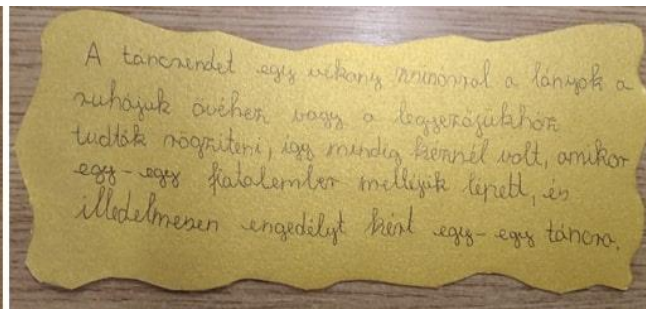 A táncrendet egy vékony zsinórral a lányok a
ruhájuk övéhez vagy a legyezőjükhöz
tudták rögzíteni, így mindig kéznél volt, amikor
egy-egy fiatalember melléjük lépett, és
illedelmesen engedélyt kért egy-egy táncra.